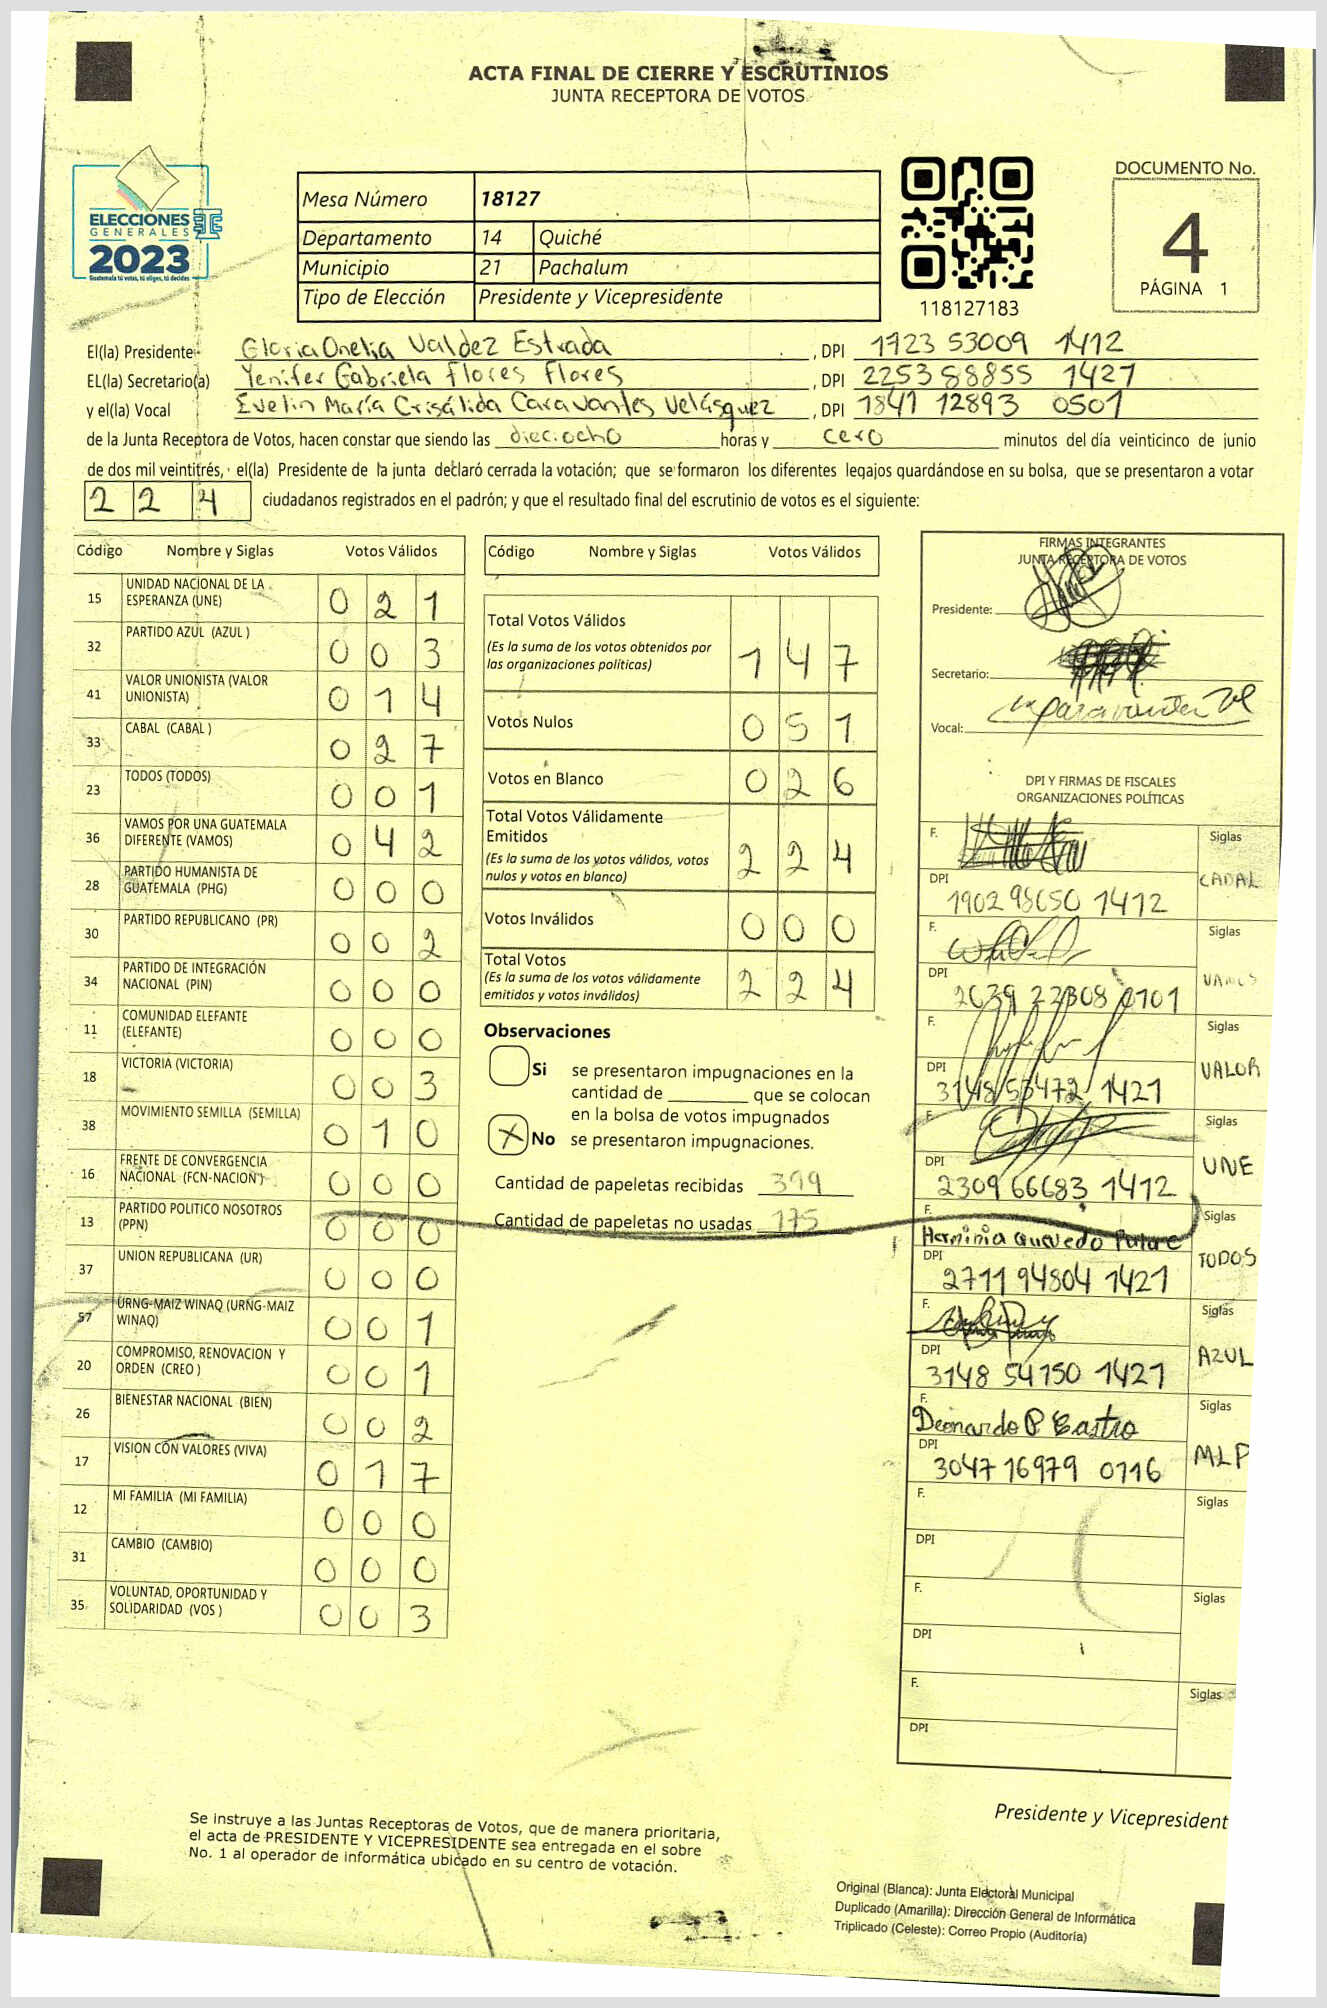 ACTA FINAL DE CIERRE Y ESCRUTINIOS
JUNTA RECEPTORA DE VOTOS
ELECCIONES
GENERALES
2023
Guatemala tú votas, tú eliges, tú decides
Mesa Número 18127
Departamento 14 Quiché
Municipio 21 Pachalum
Tipo de Elección Presidente y Vicepresidente
118127183
DOCUMENTO No.
4
PÁGINA 1
El(la) Presidente Gloria Onelia Valdez Estrada , DPI 1723 53009 1412
EL(la) Secretario(a) Yenifer Gabriela Flores Flores , DPI 2253 88855 1421
y el(la) Vocal Evelin María Crisálida Caravantes Velásquez , DPI 1841 12893 0501
de la Junta Receptora de Votos, hacen constar que siendo las dieciocho horas y cero minutos del día veinticinco de junio
de dos mil veintitrés, el(la) Presidente de la junta declaró cerrada la votación; que se formaron los diferentes legajos guardándose en su bolsa, que se presentaron a votar
224 ciudadanos registrados en el padrón; y que el resultado final del escrutinio de votos es el siguiente:
Código Nombre y Siglas Votos Válidos
15 UNIDAD NACIONAL DE LA ESPERANZA (UNE) 021
32 PARTIDO AZUL (AZUL ) 003
41 VALOR UNIONISTA (VALOR UNIONISTA) 014
33 CABAL (CABAL ) 027
23 TODOS (TODOS) 001
36 VAMOS POR UNA GUATEMALA DIFERENTE (VAMOS) 042
28 PARTIDO HUMANISTA DE GUATEMALA (PHG) 000
30 PARTIDO REPUBLICANO (PR) 002
34 PARTIDO DE INTEGRACIÓN NACIONAL (PIN) 000
11 COMUNIDAD ELEFANTE (ELEFANTE) 000
18 VICTORIA (VICTORIA) 003
38 MOVIMIENTO SEMILLA (SEMILLA) 010
16 FRENTE DE CONVERGENCIA NACIONAL (FCN-NACION ) 000
13 PARTIDO POLITICO NOSOTROS (PPN) 000
37 UNION REPUBLICANA (UR) 000
57 URNG-MAIZ WINAQ (URNG-MAIZ WINAQ) 001
20 COMPROMISO, RENOVACION Y ORDEN (CREO ) 001
26 BIENESTAR NACIONAL (BIEN) 002
17 VISION CON VALORES (VIVA) 017
12 MI FAMILIA (MI FAMILIA) 000
31 CAMBIO (CAMBIO) 000
35 VOLUNTAD, OPORTUNIDAD Y SOLIDARIDAD (VOS ) 003
Código Nombre y Siglas Votos Válidos
Total Votos Válidos 147
(Es la suma de los votos obtenidos por las organizaciones políticas)
Votos Nulos 051
Votos en Blanco 026
Total Votos Válidamente Emitidos 224
(Es la suma de los votos válidos, votos nulos y votos en blanco)
Votos Inválidos 000
Total Votos 224
(Es la suma de los votos válidamente emitidos y votos inválidos)
Observaciones
Si se presentaron impugnaciones en la
cantidad de ________ que se colocan
en la bolsa de votos impugnados
X No se presentaron impugnaciones.
Cantidad de papeletas recibidas 399
Cantidad de papeletas no usadas 175
FIRMAS INTEGRANTES
JUNTA RECEPTORA DE VOTOS
Presidente:
Secretario:
Vocal:
DPI Y FIRMAS DE FISCALES
ORGANIZACIONES POLÍTICAS
F. Siglas
DPI 1902 98650 1412 CABAL
F. Siglas
DPI 2639 22308 0101 VAMOS
F. Siglas
DPI 3148 53472 1421 VALOR
F. Siglas
DPI 2309 66683 1412 UNE
F. Herminia Quevedo Siglas
DPI 2711 94804 1421 TODOS
F. Siglas
DPI 3148 54150 1421 AZUL
F. Deonardo P Castro Siglas
DPI 3047 16979 0116 MLP
F. Siglas
DPI
F. Siglas
DPI
F. Siglas
DPI
Presidente y Vicepresident
Se instruye a las Juntas Receptoras de Votos, que de manera prioritaria,
el acta de PRESIDENTE Y VICEPRESIDENTE sea entregada en el sobre
No. 1 al operador de informática ubicado en su centro de votación.
Original (Blanca): Junta Electoral Municipal
Duplicado (Amarilla): Dirección General de Informática
Triplicado (Celeste): Correo Propio (Auditoría)